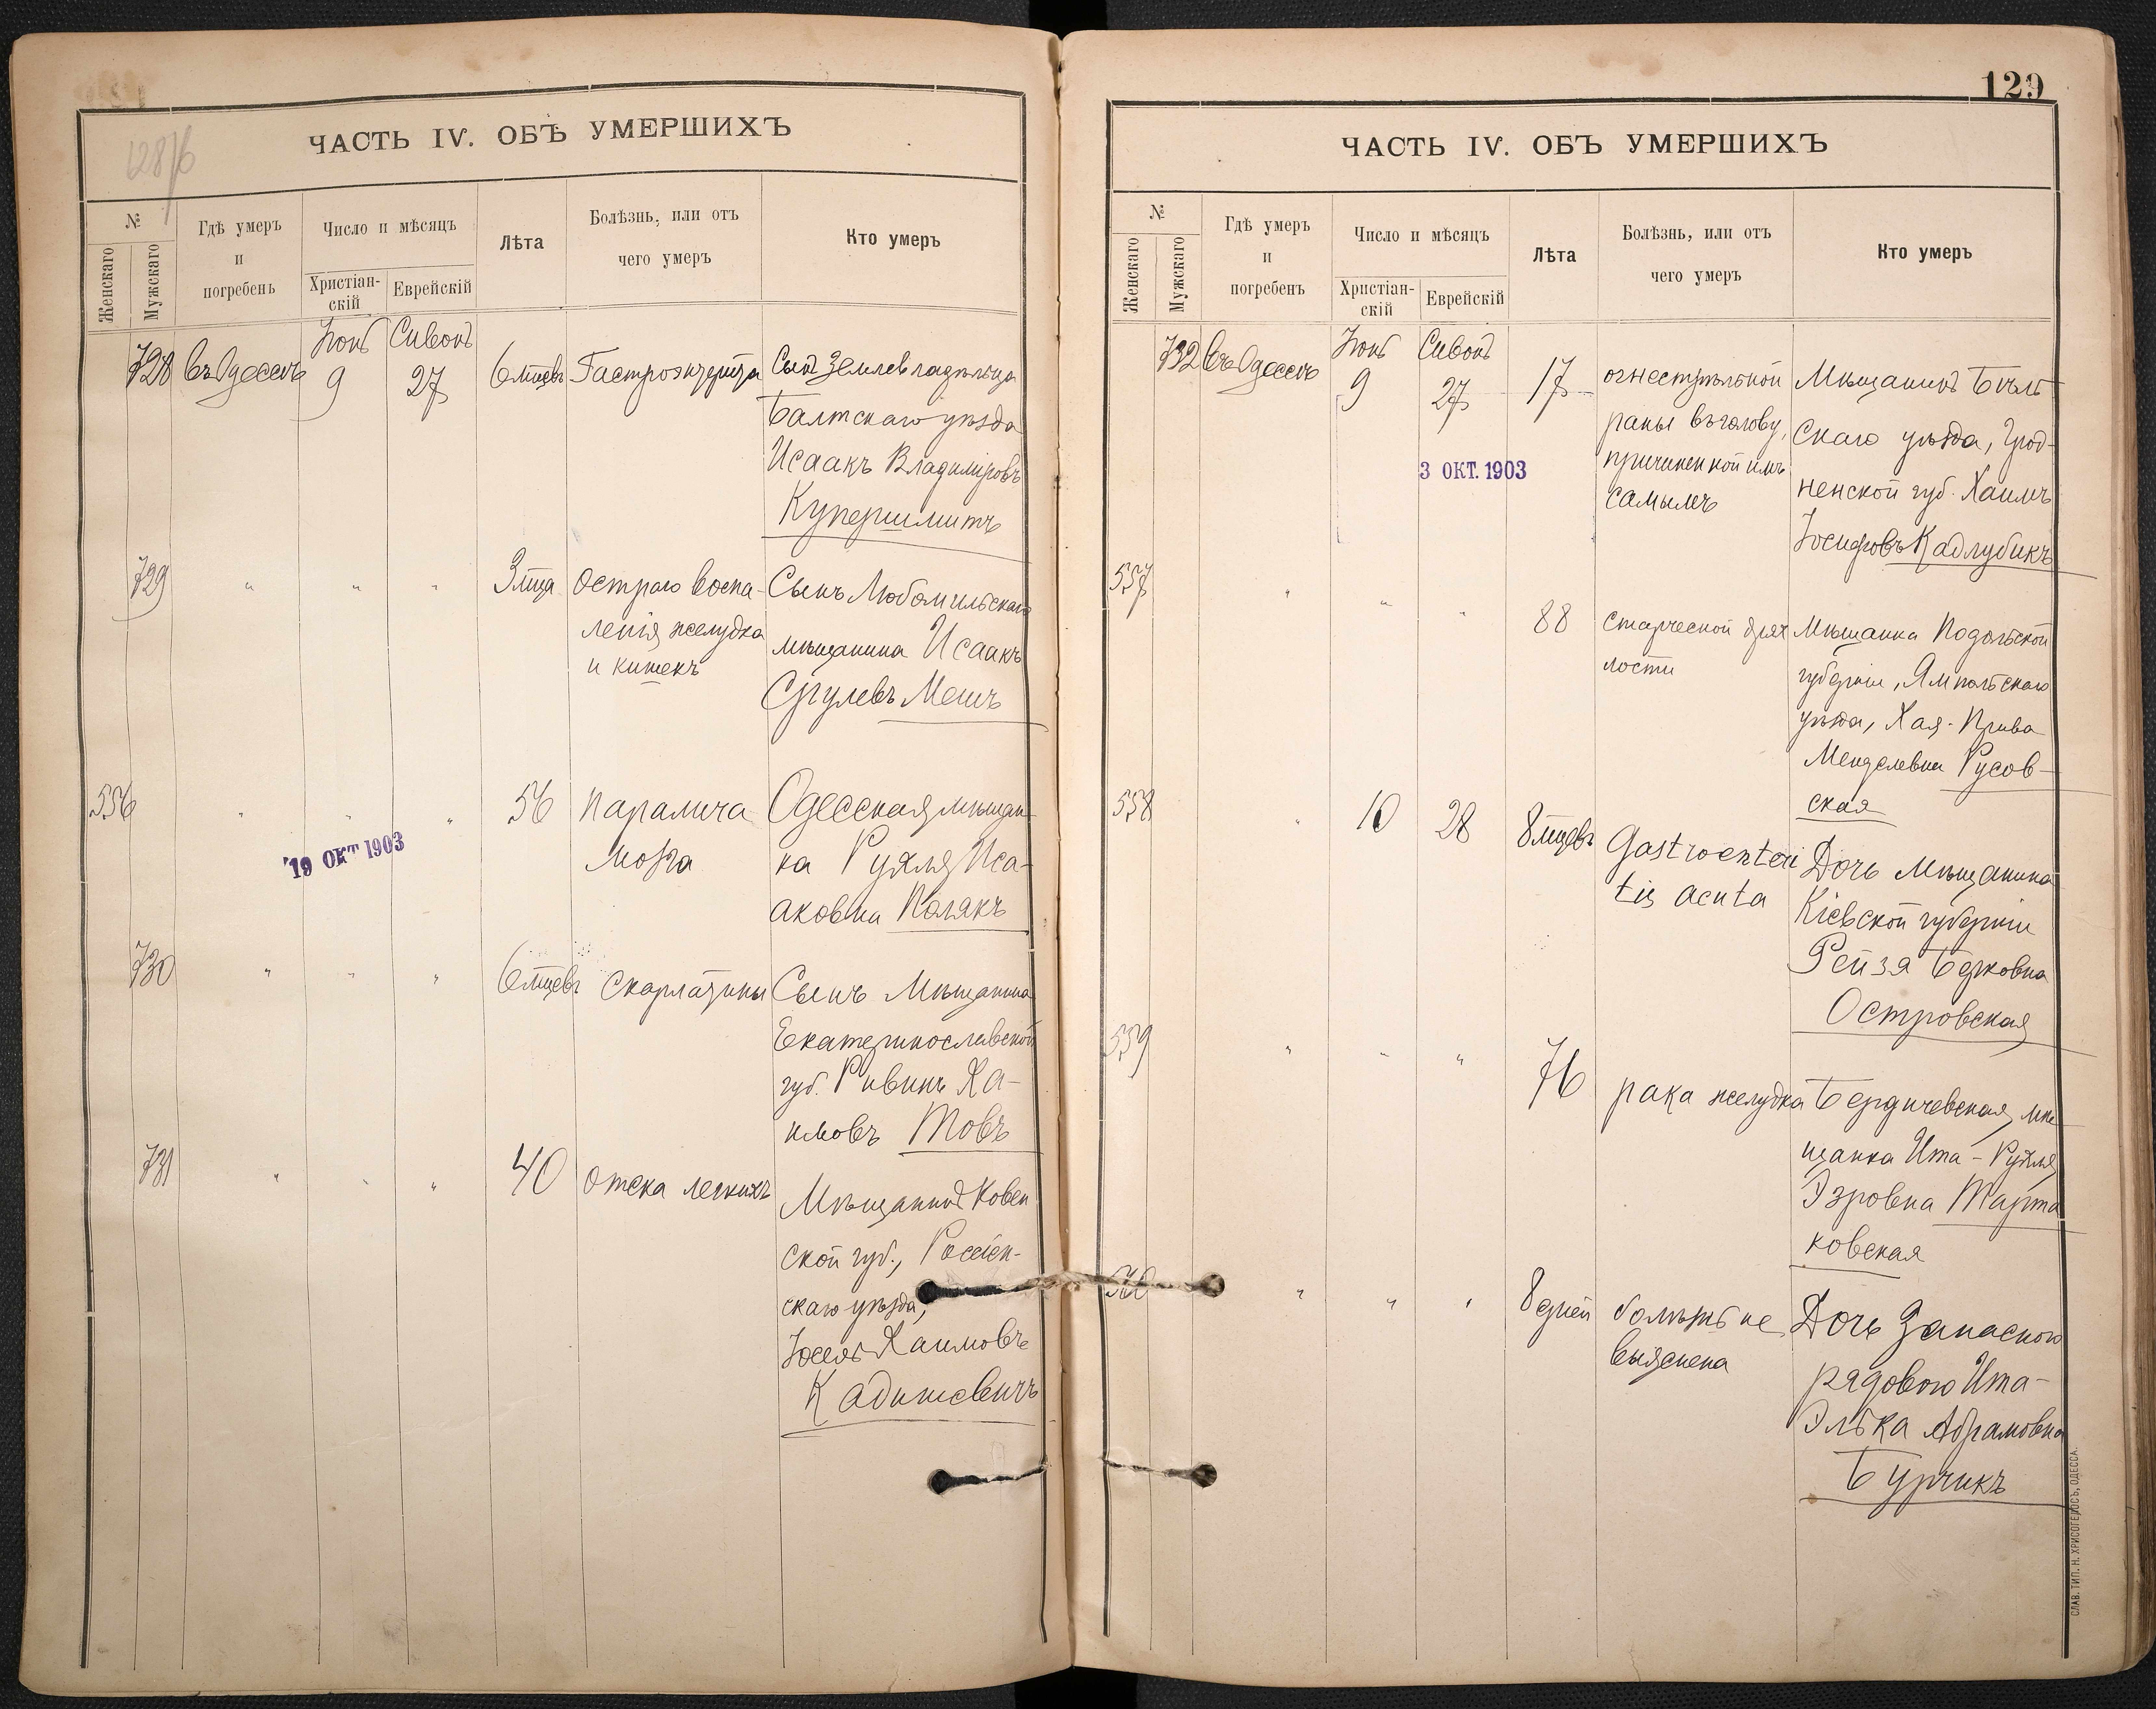 128/б
ЧАСТЬ IV. ОБЪ УМЕРШИХЪ
№
Женскаго
Мужскаго
Гдѣ умеръ
и
погребенъ
Число и мѣсяцъ
Христіан-
скій
Еврейскій
Лѣта
Болѣзнь, или отъ
чего умеръ
Кто умеръ
728
въ Одессѣ
Іюнь
9
Сивонъ
27
6 мцевъ
Гастроэнтерита
Сынъ Землевладѣльца
Балтскаго уѣзда
Исаакъ Владиміровъ
Купершмитъ
729
" " "
3 мца
Остраго воспа-
ленія желудка
и кишекъ
Сынъ Любомильскаго
мѣщанина Исаакъ
Сругулевъ Мешъ
556
" " "
56
паралича
мозга
Одесская мѣщан-
ка Рухля Иса-
аковна Полякъ
19 ОКТ 1903
730
" " "
6 мцевъ
Скарлатины
Сынъ Мѣщанина
Екатеринославской
губ. Рувинъ Ха-
имовъ Товъ
731
" " "
40
отека легкихъ
Мѣщанинъ Ковен
ской губ., Россіен-
скаго уѣзда,
Іосель Хаимовъ
Кадишевичъ
129
ЧАСТЬ IV. ОБЪ УМЕРШИХЪ
№
Женскаго
Мужскаго
Гдѣ умеръ
и
погребенъ
Число и мѣсяцъ
Христіан-
скій
Еврейскій
Лѣта
Болѣзнь, или отъ
чего умеръ
Кто умеръ
732
въ Одессѣ
Іюнь
9
Сивонъ
27
17
огнестрѣльной
раны въ голову,
причиненной имъ
самымъ
Мѣщанинъ Бѣль
скаго уѣзда, Грод-
ненской губ. Хаимъ
Іосифовъ Кадлубикъ
3 ОКТ. 1903
557
" " "
88
старческой дрях
лости
Мѣщанка Подольской
губерніи, Ямпольскаго
уѣзда, Хая-Прива
Менделевна Русов-
ская
558
"
10
28
8 мцевъ
Gastroenteri
tis acuta
Дочь Мѣщанина
Кіевской губерніи
Рейзя Берковна
Островская
559
" " "
76
рака желудка
Бердичевская мѣ
щанка Ита-Рухля
Эзровна Марта
ковская
560
" " "
8 дней
болѣзнь не
выяснена
Дочь Запасного
рядового Ита-
Элька Абрамовна
Бурчикъ
СЛАВ. ТИП. Н. ХРИСОГЕЛОСЪ, ОДЕССА.